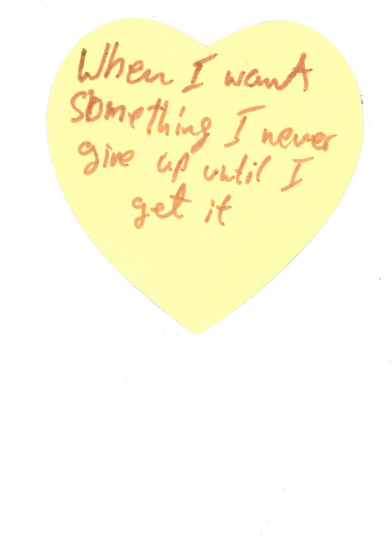 When I want
something I never
give up until I
get it